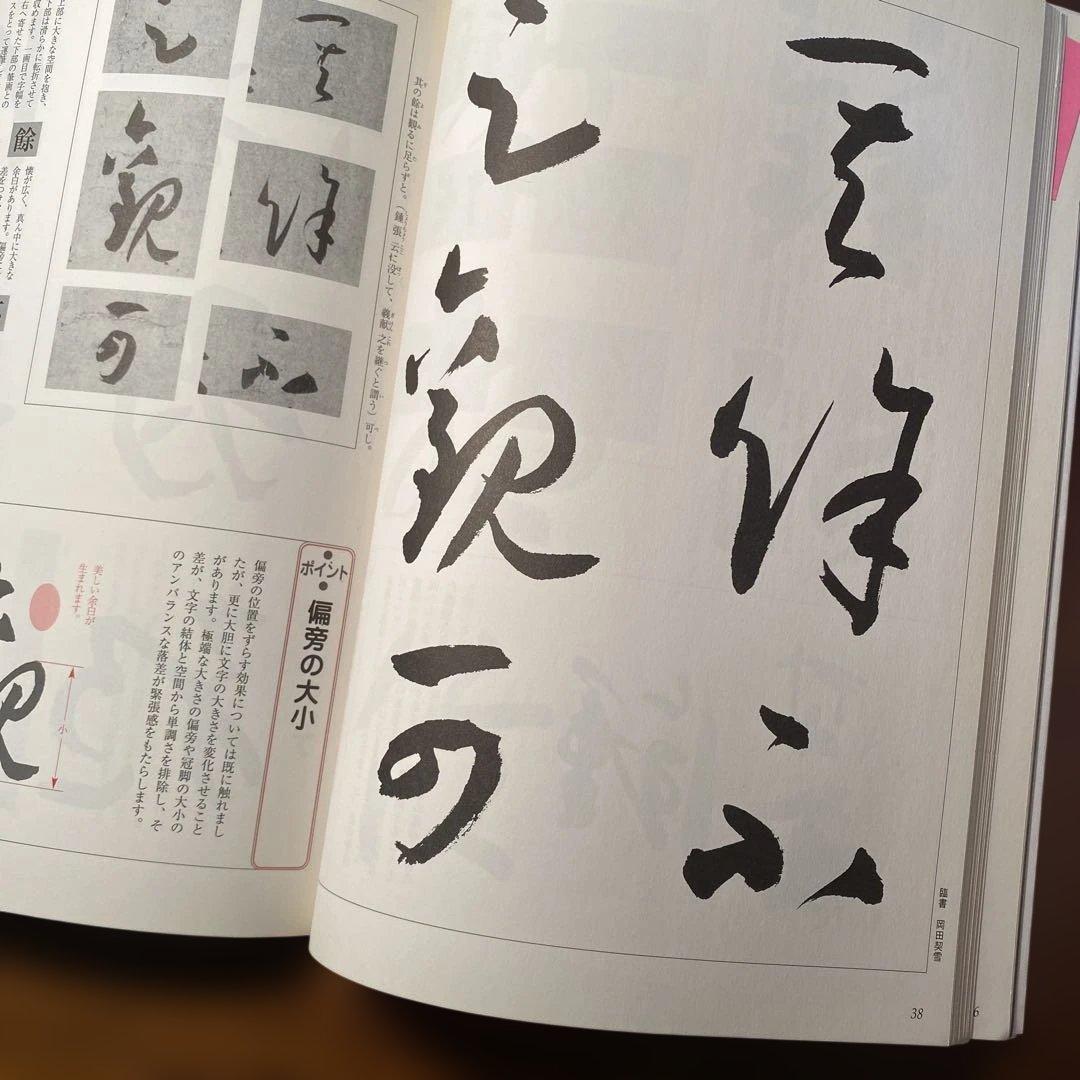 其餘不
足觀可
臨書 岡田契雪
38
6
其の餘は観るに足らずと。(鍾張云に没して、羲献之を継ぐと謂う)可し。
其餘不
足觀可
上部に大きな空間を抱き、
下部は滑らかに転折させて
収めます。一画目で字幅を
右へ寄せた下部の筆画との
餘
懐が広く、真ん中に大きな
余白があります。偏旁に
差をつけ
ポイント
偏旁の大小
偏旁の位置をずらす効果については既に触れまし
たが、更に大胆に文字の大きさを変化させること
があります。極端な大きさの偏旁や冠脚の大小の
差が、文字の結体と空間から単調さを排除し、そ
のアンバランスな落差が緊張感をもたらします。
美しい余白が
生まれます。
小